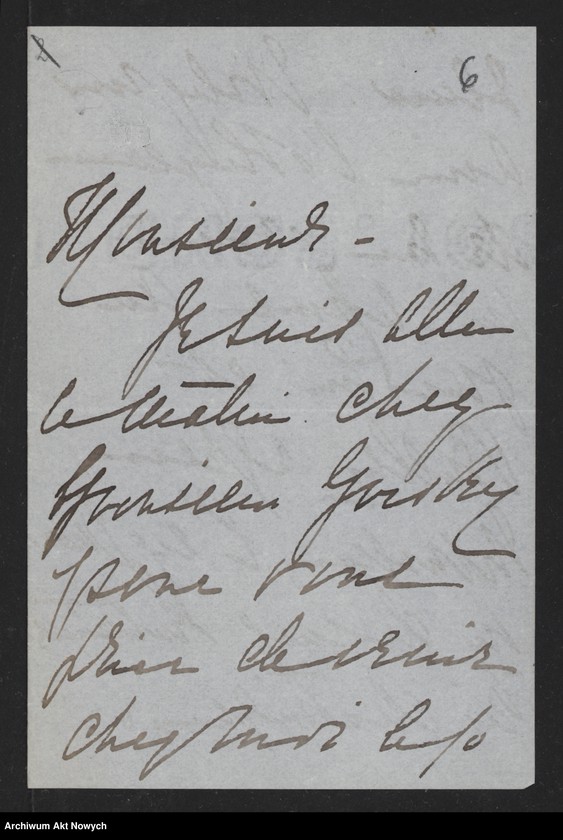 6
Monsieur -
Je suis allée
ce matin chez
Monsieur Gorsky
pour vous
prier de venir
chez moi le
Archiwum Akt Nowych